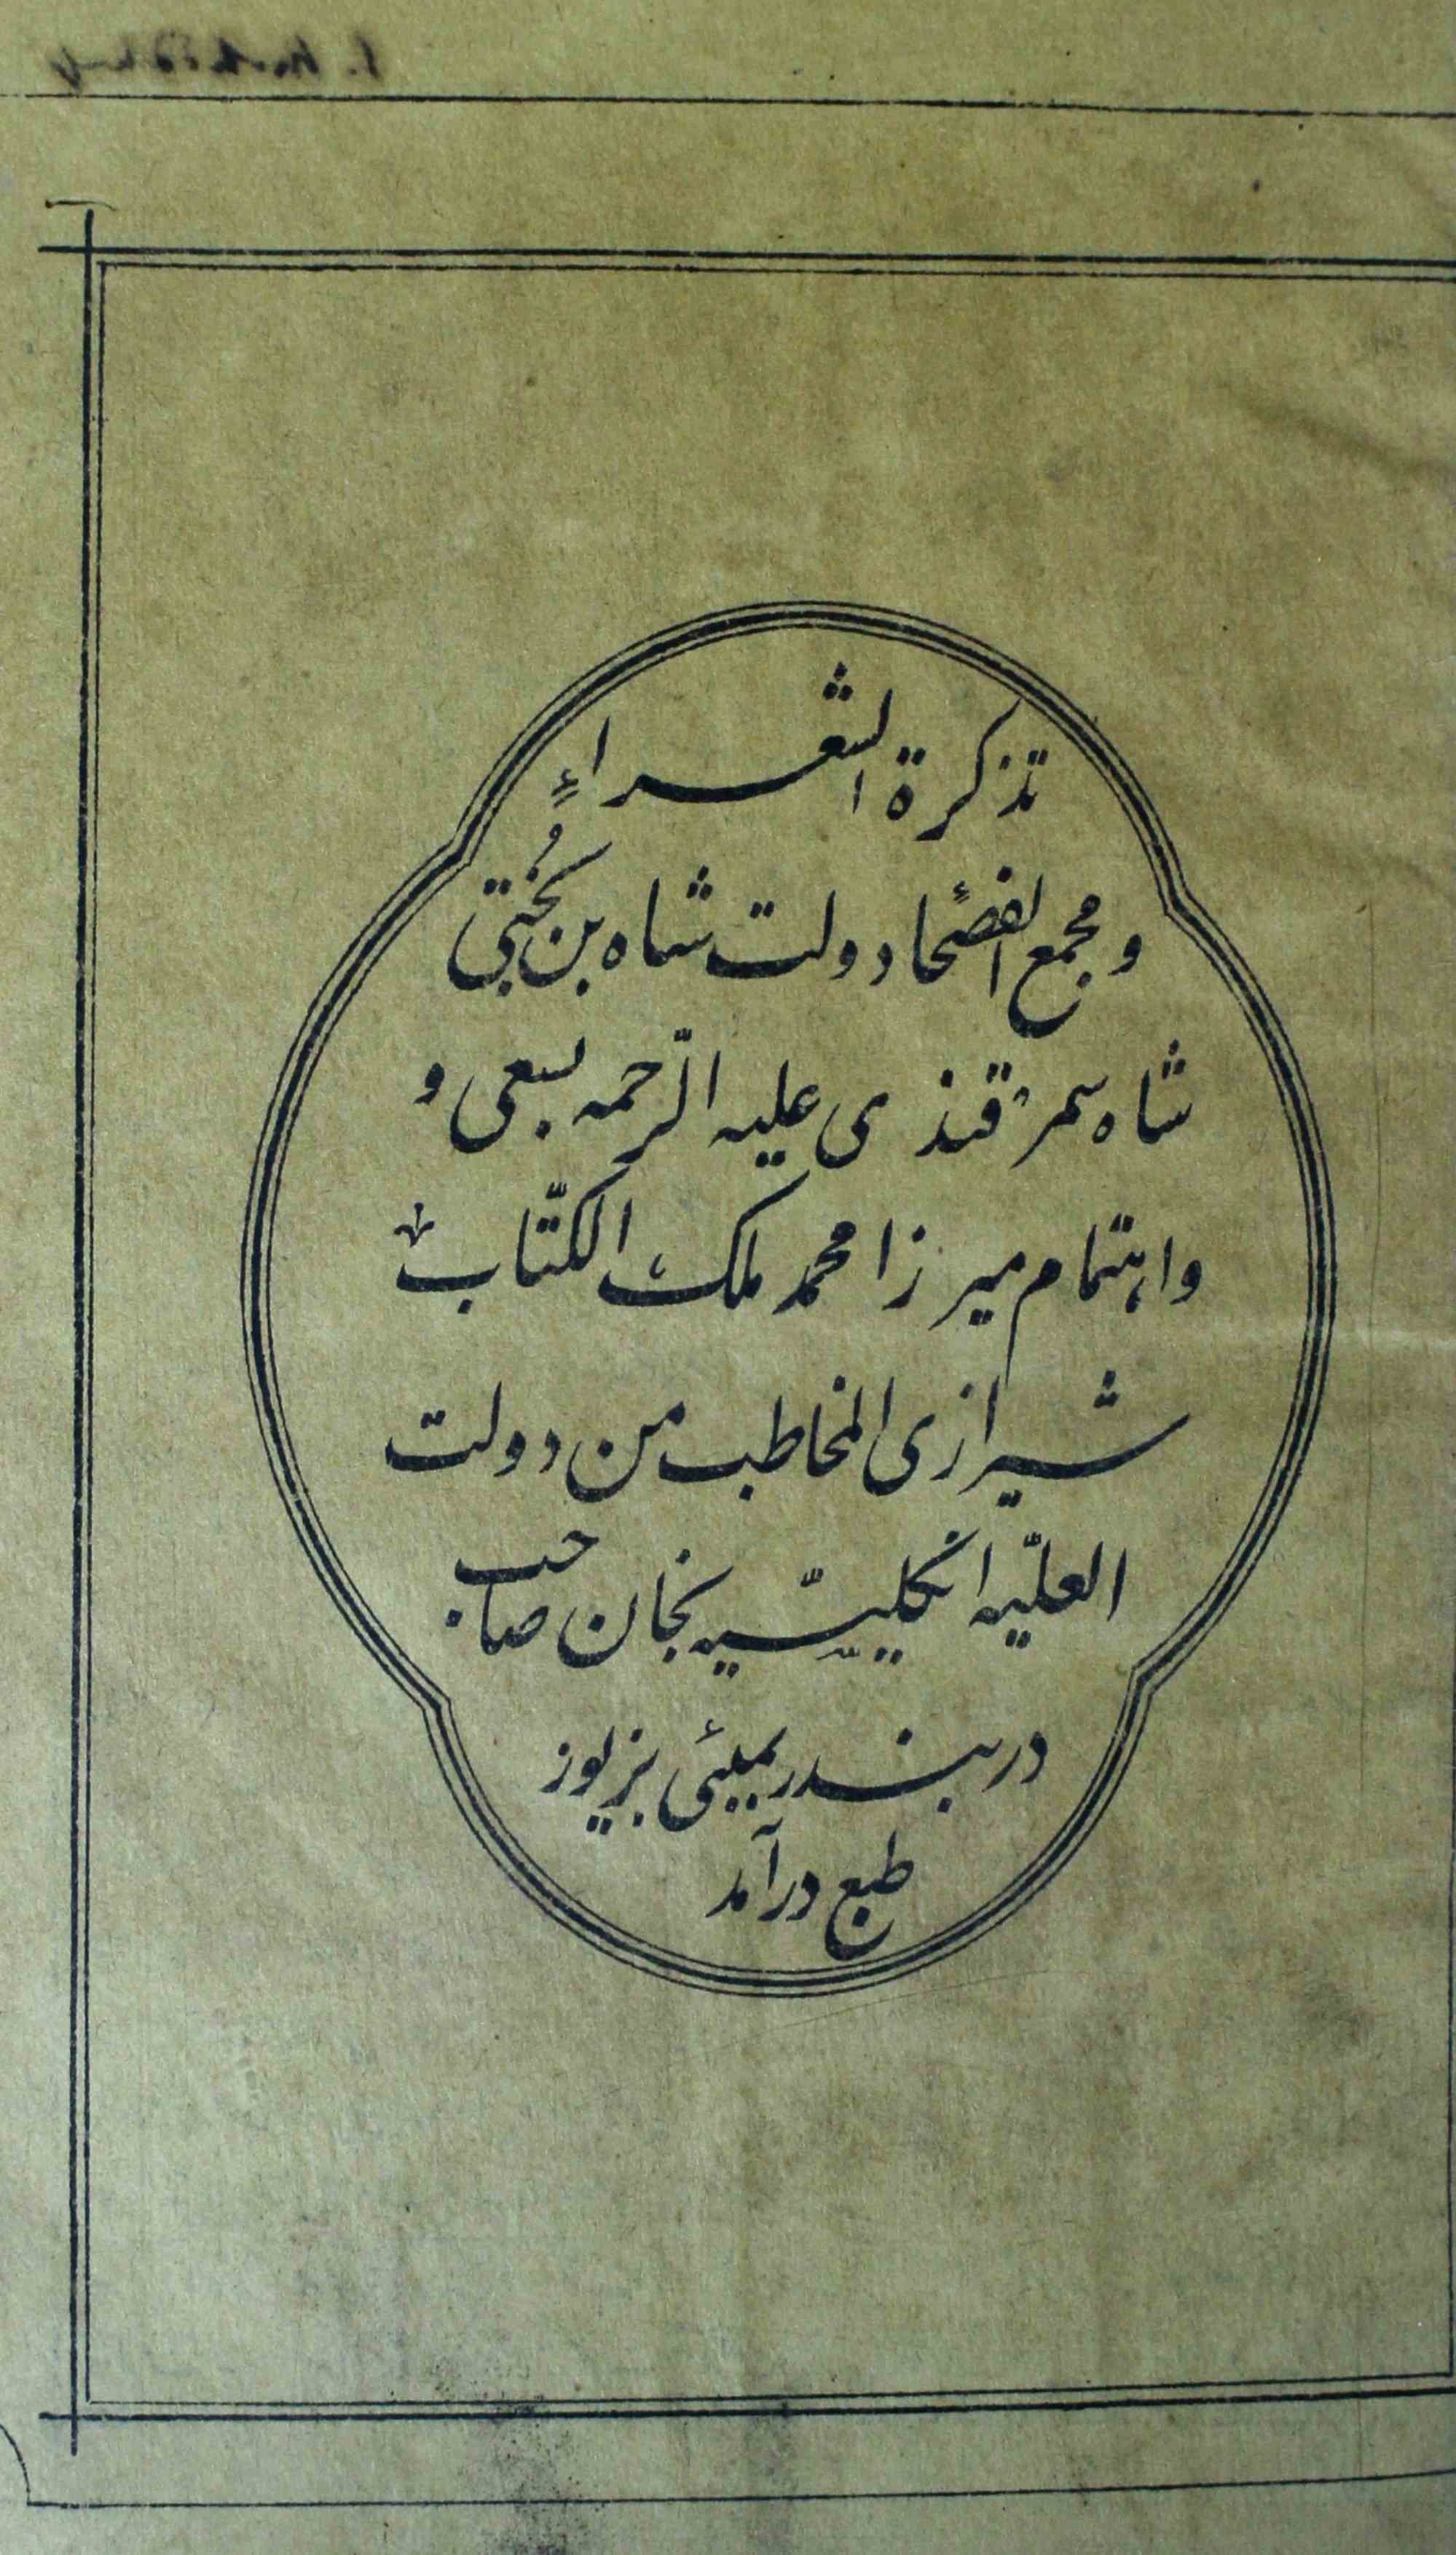 تذکرة الشعراءِ
و مجمع الفصحا دولت شاه بن بُختی
شاه سمرقندی علیه الرّحمه بسعی و
و اهتمام میرزا محمد ملک الکتّاب
شیرازی المخاطب من دولت
العلیّه انکلیسیّه بخان صاحب
در بندر بمبیئی بزیور
طبع درآمد